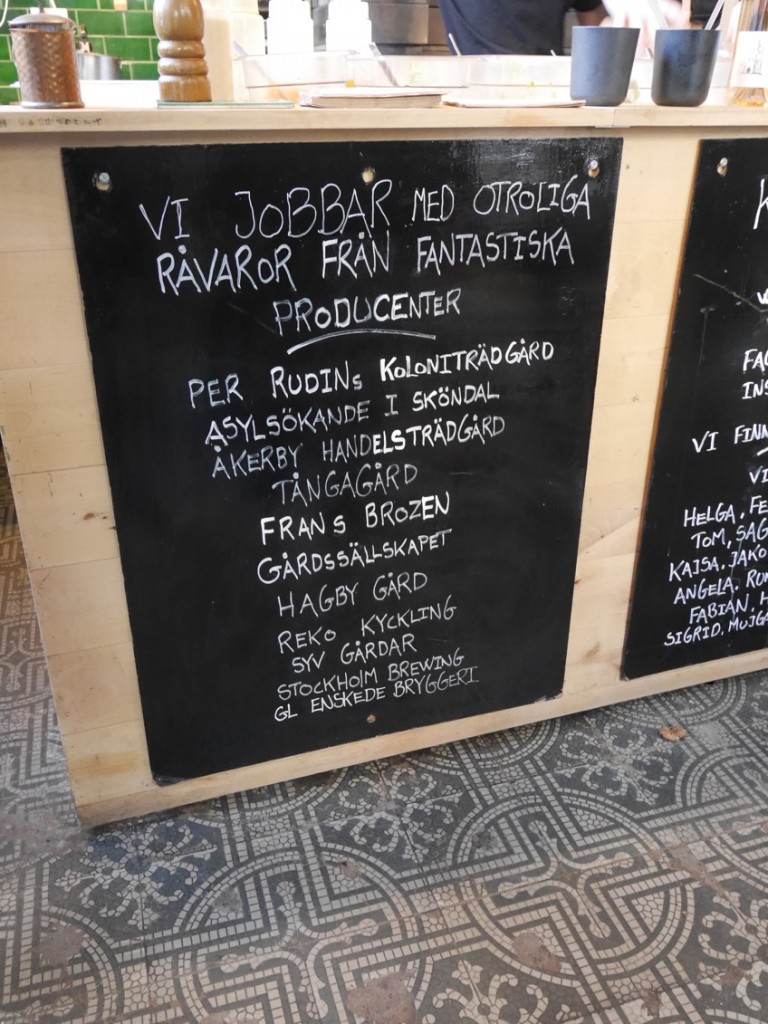 VI JOBBAR MED OTROLIGA
RÅVAROR FRÅN FANTASTISKA
PRODUCENTER
PER RUDINS KOLONITRÄDGÅRD
ASYLSÖKANDE I SKÖNDAL
ÅKERBY HANDELSTRÄDGÅRD
TÅNGAGÅRD
FRANS BROZEN
GÅRDSSÄLLSKAPET
HAGBY GÅRD
REKO KYCKLING
SYV GÅRDAR
STOCKHOLM BREWING
GL ENSKEDE BRYGGERI
K
FAC
INS
VI FINN
VI
HELGA, FE
TOM, SAG
KAJSA, JAKO
ANGELA, RUN
FABIAN, H
SIGRID, MUJGA